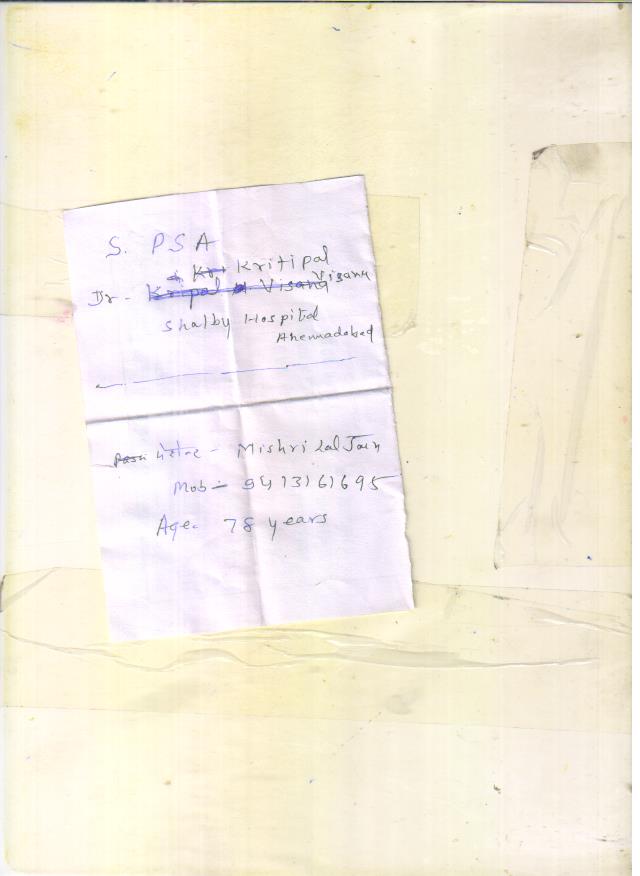 S. PSA
Kritipal
Dr - Visana
Shalby Hospital
Ahemadabad
Mishri Lal Jain
Mob - 9413161695
Age. 78 years